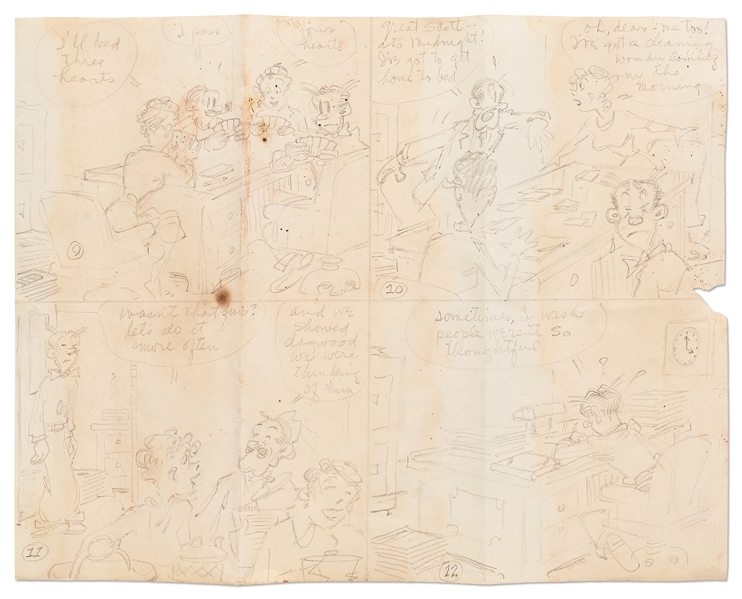 I'll bid
three
hearts
I pass
!!
four
hearts
great Scott--
its midnight!
I've got to get
home to bed
oh, dear - me too!
I've got a cleaning
woman coming
in the
morning
9
10
wasn't that fun?
let's do it
more often
!!
and we
showed
dagwood
we were
thinking
of him
Sometimes, I wish
people weren't so
thoughtful
11
12